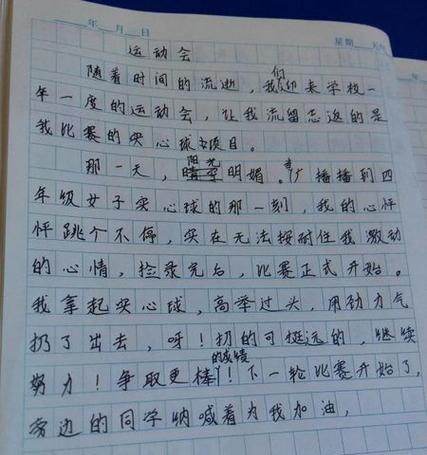 年 月 日 星期 天气
运动会
随着时间的流逝，我们迎来学校一
年一度的运动会，让我流留忘返的是
我比赛的实心球项目。
那一天，阳光明媚。广播播到四
年级女子实心球的那一刻，我的心怦
怦跳个不停，实在无法按耐住我激动
的心情，捡录完后，比赛正式开始。
我拿起实心球，高举过头，用劲力气
扔了出去，呀！扔的可挺远的，继续
努力！争取更棒的成绩！下一轮比赛开始了，
旁边的同学呐喊着为我加油，